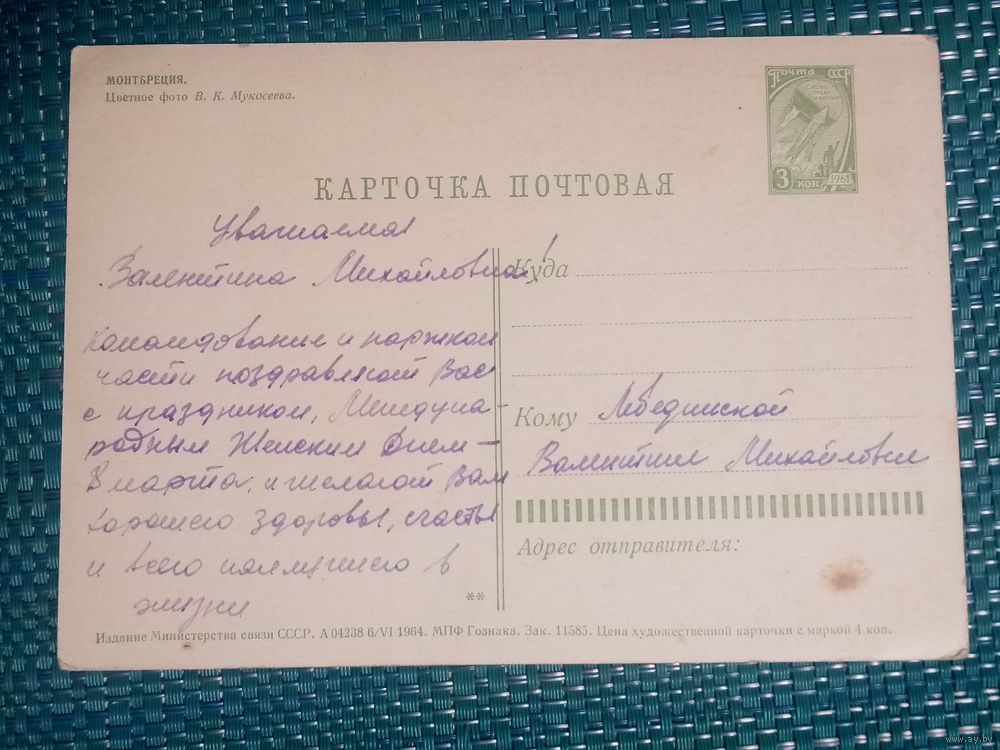 МОНТБРЕЦИЯ.
Цветное фото В. К. Мукосеева.
Почта СССР
3 коп
1961
КАРТОЧКА ПОЧТОВАЯ
Уважаемая
Валентина Михайловна!
Командование и партком
части поздравляют Вас
с праздником, Междуна-
родным Женским Днем –
8 марта, и желают Вам
хорошего здоровья, счастья
и всего наилучшего в
жизни
Куда
Кому Лебединской
Валентине Михайловне
Адрес отправителя:
**
Издание Министерства связи СССР. А 04238 6/VI 1964. МПФ Гознака. Зак. 11585. Цена художественной карточки с маркой 4 коп.
www.ay.by